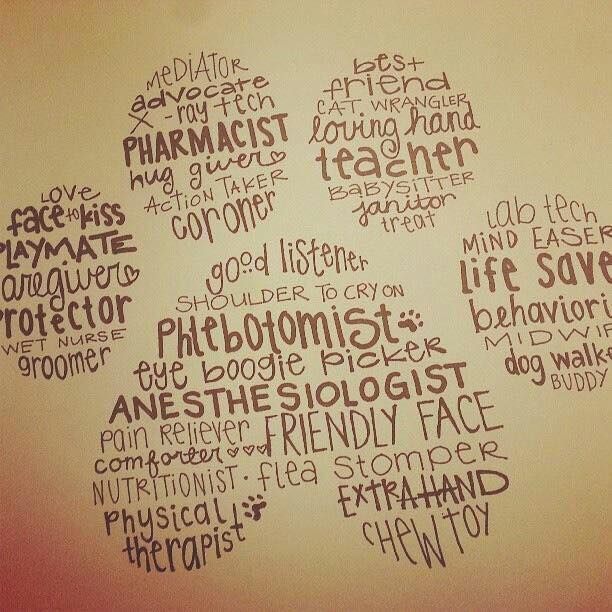 LOVE
face to kiss
PLAYMATE
aregiver
Protector
WET NURSE
groomer
MEDiATOR
advocate
X-ray tech
PHARMACIST
hug giver
ACTION TAKER
coroner
best
friend
CAT WRANGLER
loving hand
teacher
BABYSITTER
janitor
treat
lab tech
MiND EASER
Life Save
behaviori
MIDWIF
dog walk
BUDDY
good listener
SHOULDER TO CRY ON
Phlebotomist
eye boogie picker
ANESTHESIOLOGIST
pain Reliever FRIENDLY FACE
comforter
NUTRITIONIST · flea Stomper
physical EXTRA HAND
therapist CHEW TOY